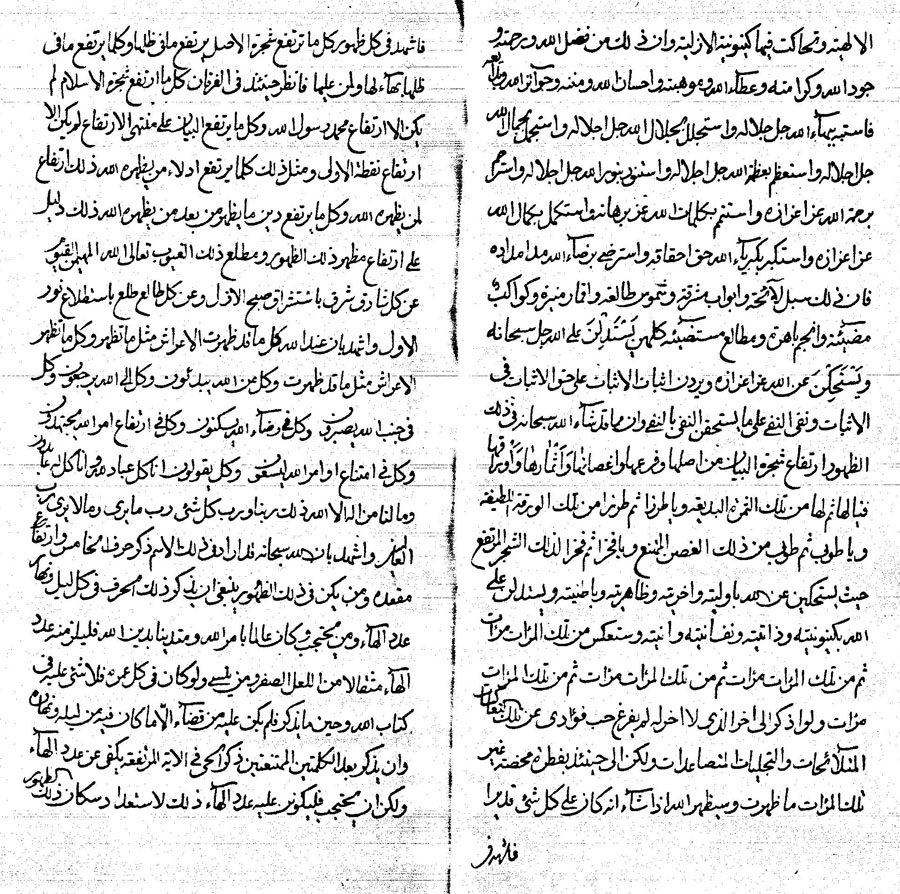 الالهية وتحاكت فيها كينونية الازلية وان ذلك من فضل الله ورحمته و
جود الله وكرامته وعطاء الله وموهبته واحسان الله ومننه وجوائز الله
فاستبه ببهاء الله جل جلاله واستجلل بجلال الله جل اجلاله واستجمل بجمال الله
جل اجلاله واستعظم بعظمة الله جل اجلاله واستنور بنور الله جل اجلاله واسترحم
برحمة الله عز اعزازه واستتم بكلمات الله عز برهانه واستكمل بكمال الله
عز اعزازه واستكبر بكبرياء الله حق احقاقه واسترض برضاء الله
فان ذلك سبل لائحة وابواب مشرقة وشموس طالعة واقمار منيرة وكواكب
مضيئة وانجم باهرة ومطالع مستضيئة كلهن يستدللن على الله جل سبحانه
ويستحكين عن الله عز اعزازه ويردن اثبات الاثبات على حق الاثبات في
الاثبات ونفي النفي على ما يستحق النفي بالنفي وان ما قد شاء الله سبحانه في ذلك
الظهور ارتفاع شجرة البيان من اصلها وفرعها واغصانها واثمارها واوراقها
فيا لها ثم لها من تلك الثمرة البديعة ويا طرزا ثم طرزا من تلك الورقة اللطيفة
ويا طوبى ثم طوبى من ذلك الغصن الممتنع ويا فخرا ثم فخرا لذلك الشجر المرتفع
حيث يستحكين عن الله باوليته واخريته وظاهريته وباطنيته ويستدلن على
الله بكينونيته وذاتيته ونفسانيته وانيته وستعكس من تلك المرات مرات
ثم من تلك المرات مرات ثم من تلك المرات مرات ثم من تلك المرات
مرات ولو اذكر الى اخر الذي لا اخر له لم يفرغ حب فؤادي عن تلك
المتلائحات والتجليات المتصاعدات ولكن الى حينئذ بفطرة محضة غير
تلك المرات ما ظهرت وسيظهر الله اذا شاء انه كان على كل شئ قديرا
فاشهد في
فاشهد في كل ظهور كل ما ترتفع شجرة الاصل يرتفع ما في ظلها وكلما يرتفع ما في
ظلها بهاء لها ولمن عليها فانظر حينئذ في الفرقان كل ما ارتفع شجرة الاسلام لم
يكن الا ارتفاع محمد رسول الله وكل ما يرتفع البيان على منتهى الارتفاع لم يكن الا
ارتفاع نقطة الاولى ومثل ذلك كلما يرتفع ادلاء من يظهره الله ذلك ارتفاع
لمن يظهره الله وكل ما يرتفع دين ما يظهر من بعد من يظهره الله ذلك دليل
على ارتفاع مظهر ذلك الظهور ومطلع ذلك الغيوب تعالى الله المهيمن القيوم
عن كل شارق شرق باستشراق صبح الازل وعن كل طالع طلع باستطلاع نور
الاول واشهد بان عند الله كل ما قد ظهرت الاعراش مثل ما تظهر وكل ما تظهر
الاعراش مثل ما قد ظهرت وكل من الله يبدئون وكل الى الله يرجعون وكل
في حب الله يصبرون وكل في رضاء الله يسكنون وكل في ارتفاع امر الله يجتهدون
وكل في امتناع اوامر الله يسعون وكل يقولون انا كل عباد لله وانا كل له عابدون
وما لنا من اله الا الله ذلك ربنا ورب كل شئ رب ما يرى وما لا يرى رب
العالمين واشهد بان الله سبحانه قد اراد في ذلك الاسم ذكر حرف الخامس وارتفاع
مقعده ومن يكن في ذلك الظهور ينبغي ان يذكر ذلك الحرف في كل ليل ونهار
عدد الهاء ومن يحتجب وكان عالما بامر الله ومتدينا بدين الله فليلزمنه عدد
الهاء مثقالا من اللعل الصفر ولو كان في كل عمره فلا شئ عليه في
كتاب الله وحين ما يذكر فلم يكن عليه من قضاء الا ما كان فيه من ليله ونهاره
وان يذكر بعد الكلمتين الممتنعتين ذكر الحي في الاية المرتفعة يكفي عن عدد الهاء
ولكن ان يحتجب فليكونن عليه عدد الهاء ذلك لاستعداد سكان ذلك الظهور